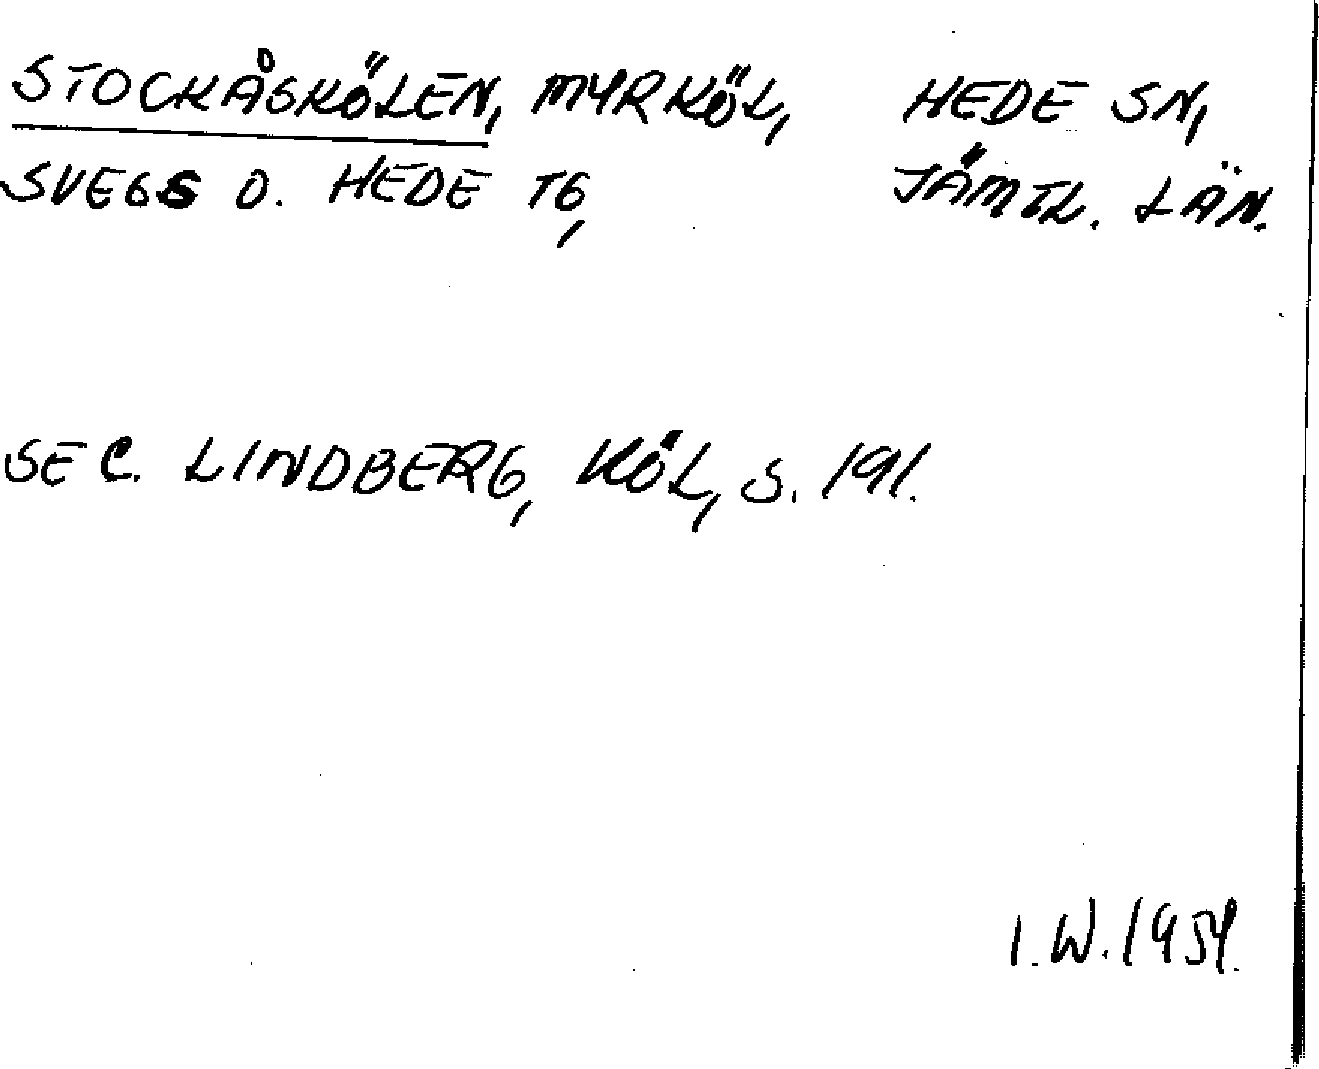 STOCKÅSKÖLEN, MYRKÖL, HEDE SN,
SVEGS O. HEDE TG, JÄMTL. LÄN.
SEC. LINDBERG, KÖL, S. 191.
I.W. 1959.